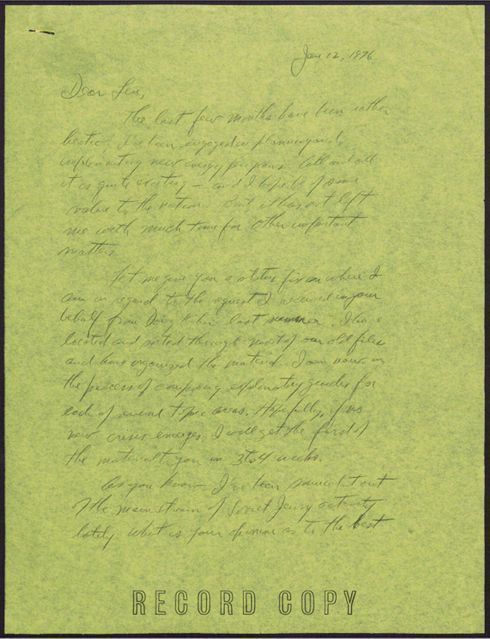 Jan 12, 1976
Dear Lou,
The last few months have been rather
hectic. I've been engaged in planning and
implementing new energy programs. All in all
it is quite exciting — and I hope of some
value to the nation. But it has not left
me with much time for other important
matters.
Let me give you a status fix on where I
am in regard to the request I received in your
behalf from last summer. I have
located and sorted through most of our old files
and have organized the material. I am now in
the process of composing explanatory guides for
each of several topic areas. Hopefully, if no
new crisis emerges, I will get the first of
the material to you in 3 to 4 weeks.
As you know I've been somewhat out
of the mainstream of Soviet Jewry activity
lately. What is your opinion as to the best
RECORD COPY